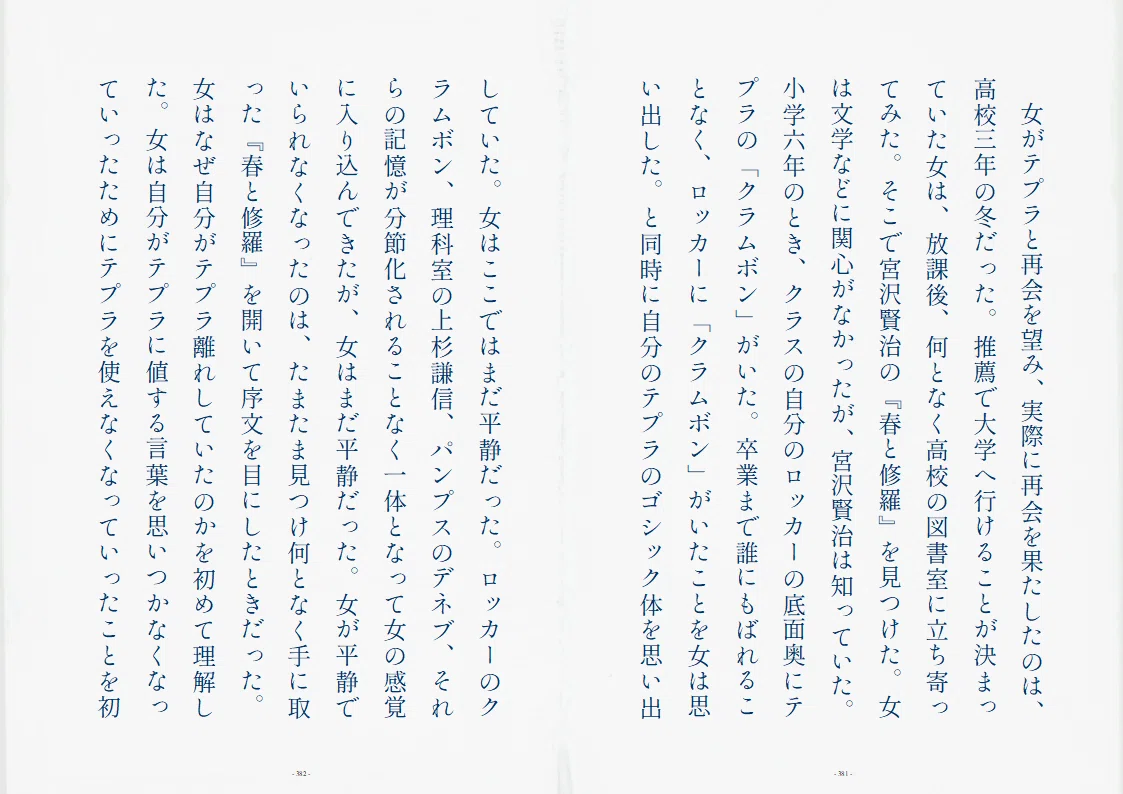 女がテプラと再会を望み、実際に再会を果たしたのは、
高校三年の冬だった。推薦で大学へ行けることが決まっ
ていた女は、放課後、何となく高校の図書室に立ち寄っ
てみた。そこで宮沢賢治の『春と修羅』を見つけた。女
は文学などに関心がなかったが、宮沢賢治は知っていた。
小学六年のとき、クラスの自分のロッカーの底面奥にテ
プラの「クラムボン」がいた。卒業まで誰にもばれるこ
となく、ロッカーに「クラムボン」がいたことを女は思
い出した。と同時に自分のテプラのゴシック体を思い出
- 381 -
していた。女はここではまだ平静だった。ロッカーのク
ラムボン、理科室の上杉謙信、パンプスのデネブ、それ
らの記憶が分節化されることなく一体となって女の感覚
に入り込んできたが、女はまだ平静だった。女が平静で
いられなくなったのは、たまたま見つけ何となく手に取
った『春と修羅』を開いて序文を目にしたときだった。
女はなぜ自分がテプラ離れしていたのかを初めて理解し
た。女は自分がテプラに値する言葉を思いつかなくなっ
ていったためにテプラを使えなくなっていったことを初
- 382 -